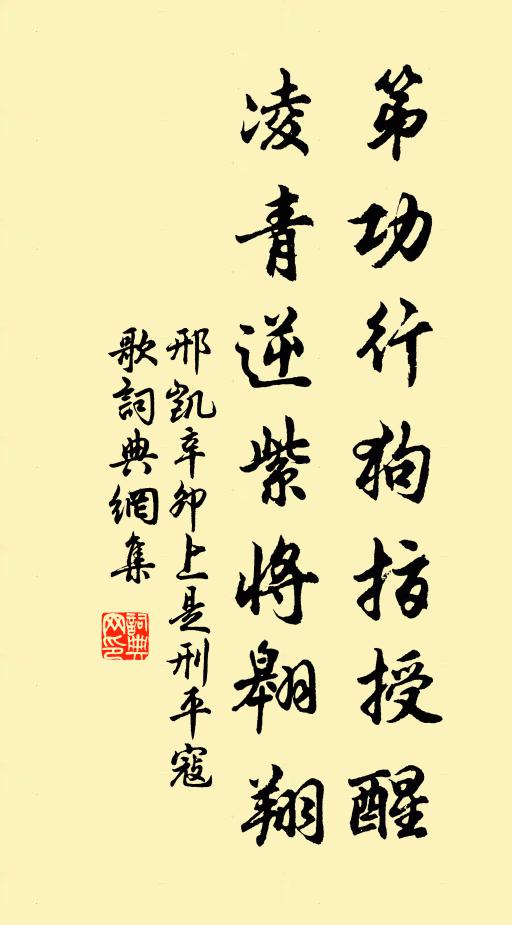 第功行狗指授醒
凌青逆紫將翱翔
邢凱辛卯上是刑平寇
歌詞典網集
詞典
网印